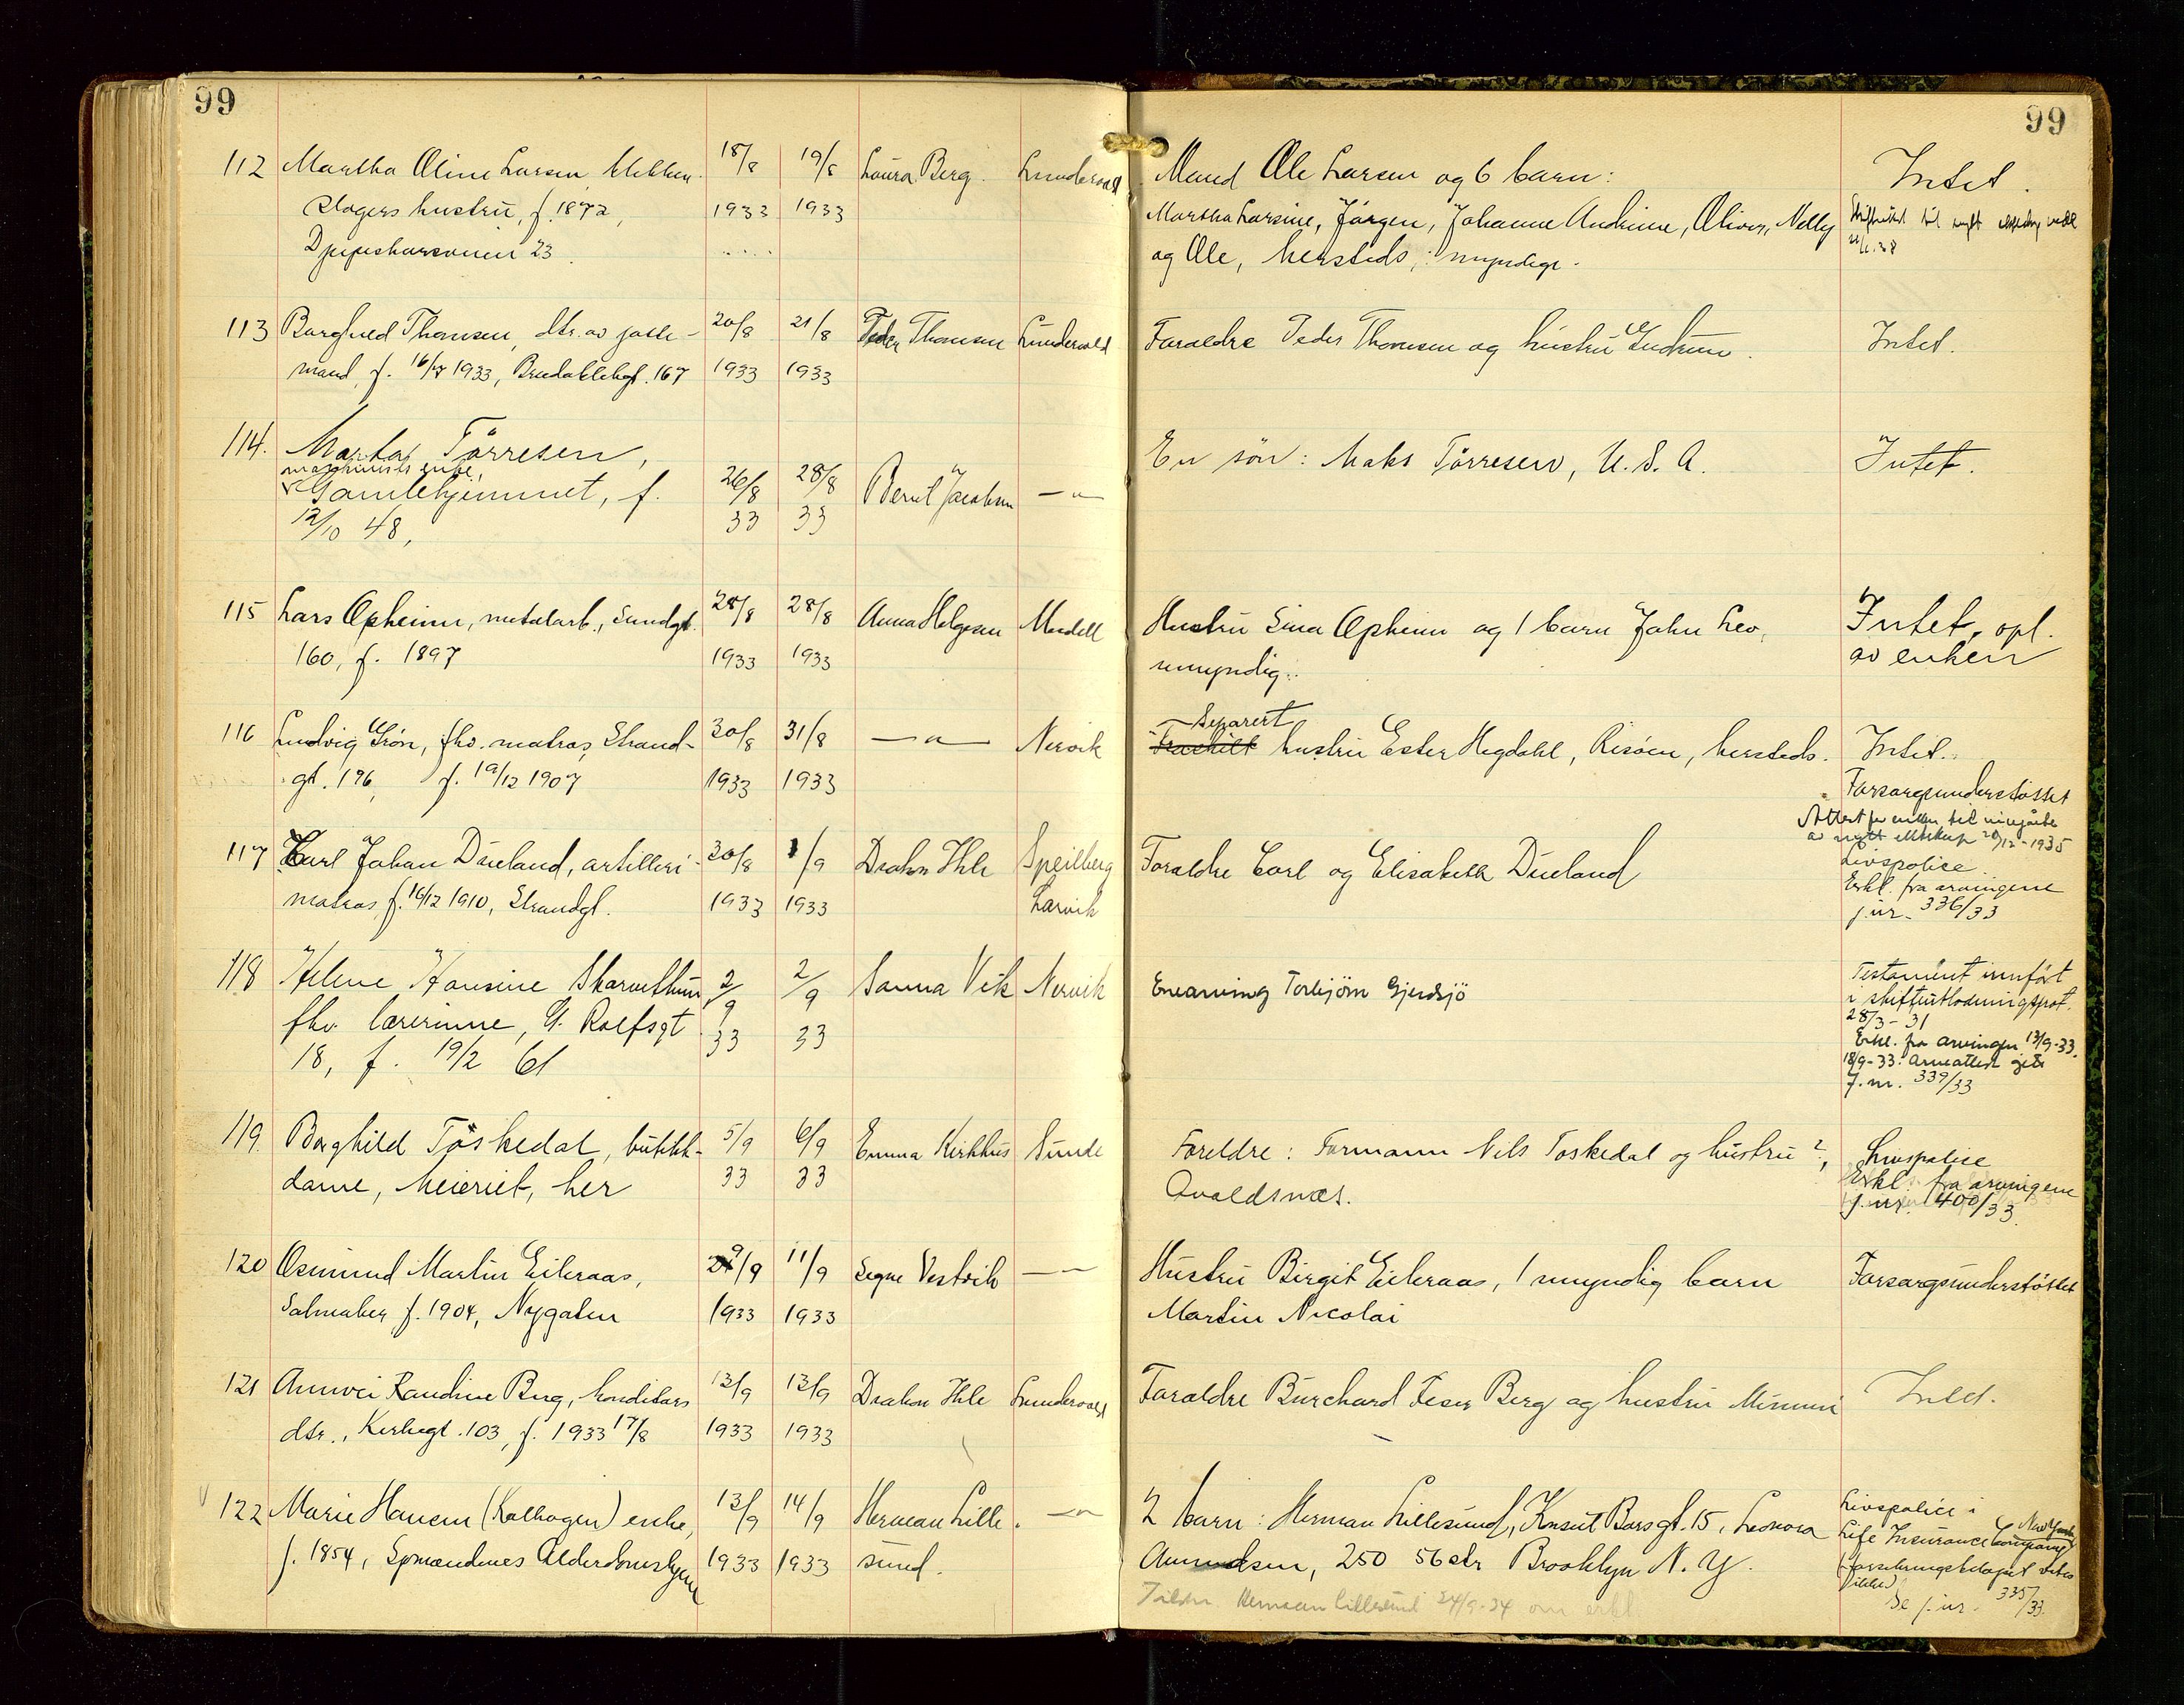 99
99
112 Martha Oline Larsen, blikken- 18/8 19/8 Laura Berg. Lundevold Mand Ole Larsen og 6 barn: Intet.
slagers hustru, f. 1872, 1933 1933 Martha Larsine, Jørgen, Johanne Andrine, Oliver, Nelly
Djupeskarveien 23. og Ole, hersteds, myndige.
22/6.38
113 Borghild Thomsen, dtr. av jaste- 20/8 21/8 Peder Thomsen Lundevold Foraldre Peder Thomsen og hustru Gudrun. Intet.
mand, f. 16/7 1933, Breidablikgt. 167 1933 1933
114. Marta Tørresen, En søn: Maks Tørresen, U.S.A. Intet.
maskinists enke,
Gamlehjemmet, f. 26/8 28/8 Berit Jacobsen —"—
12/10 48, 33 33
115 Lars Opheim, metalarb., Sundgt. 28/8 28/8 Anna Helgesen Mendell Hustru Sina Opheim og 1 barn John Leo, Intet, opl.
160, f. 1897 1933 1933 umyndig. av enken
Separert
116 Ludvig Grøn, fhv. matros, Strand- 30/8 31/8 —"— Nervik Fraskilt hustru Ester Hegdahl, Risøen, hersteds. Intet.
gt. 196, f. 19/12 1907 1933 1933 Forsorgsunderstøttet
Attest for enken til inngåelse
av nytt ektskap 20/12-1935
117 Carl Johan Dueland, artilleri- 30/8 1/9 Diakon Ihle Speilberg Foraldre Carl og Elisabeth Dueland Livspolice.
matros, f. 16/12 1910, Strandgt. 1933 1933 Larvik Erkl. fra arvingene
j.nr. 336/33
118 Helene Hansine Skarvethun 2/9 2/9 Sanna Vik Nervik Enearving Torbjørn Gjerdsjö Testament innført
fhv. lærerinne, G. Rolfsgt 33 33 i skifteutlodningsprot.
18, f. 19/2 61 28/3-31
Erkl. fra arvingen 13/9-33.
18/9-33: Arveattest gitt
J.nr. 339/33
119. Borghild Toskedal, butikk- 5/9 6/9 Emma Kirkhus Sunde Foreldre: Formann Nils Toskedal og hustru ?, Livspolice
dame, Meieriet, her 33 33 Avaldsnæs. Erkl. fra arvingene
j.nr. 400/33.
120 Osmund Martin Eikeraas, 9/9 11/9 Signe Vestvik —"— Hustru Birgit Eikeraas, 1 umyndig barn Forsorgsunderstøttet
Salmaker, f. 1904, Nygaten 1933 1933 Martin Nicolai
121 Annvei Randine Berg, konditors 12/9 13/9 Diakon Ihle Lundevold Foraldre Burchard Feser Berg og hustru Mimmi Intet.
dtr., Kirkegt. 103, f. 1933 17/8 1933 1933
122 Marie Hansen (Kolhagen) enke, 13/9 14/9 Herman Lille- —"— 2 barn: Herman Lillesund, Konsul Borsgt. 15, Leonora Livspolice i New York
f. 1854, Sømændenes Alderdomshjem 1933 1933 sund. Amundsen, 250 56 str Brooklyn N.Y. Life Insurance Company
(forsikringsbeløpet vites
ikke)
Tilskr. Herman Lillesund 24/9-34 om erkl. Se j.nr. 335/33